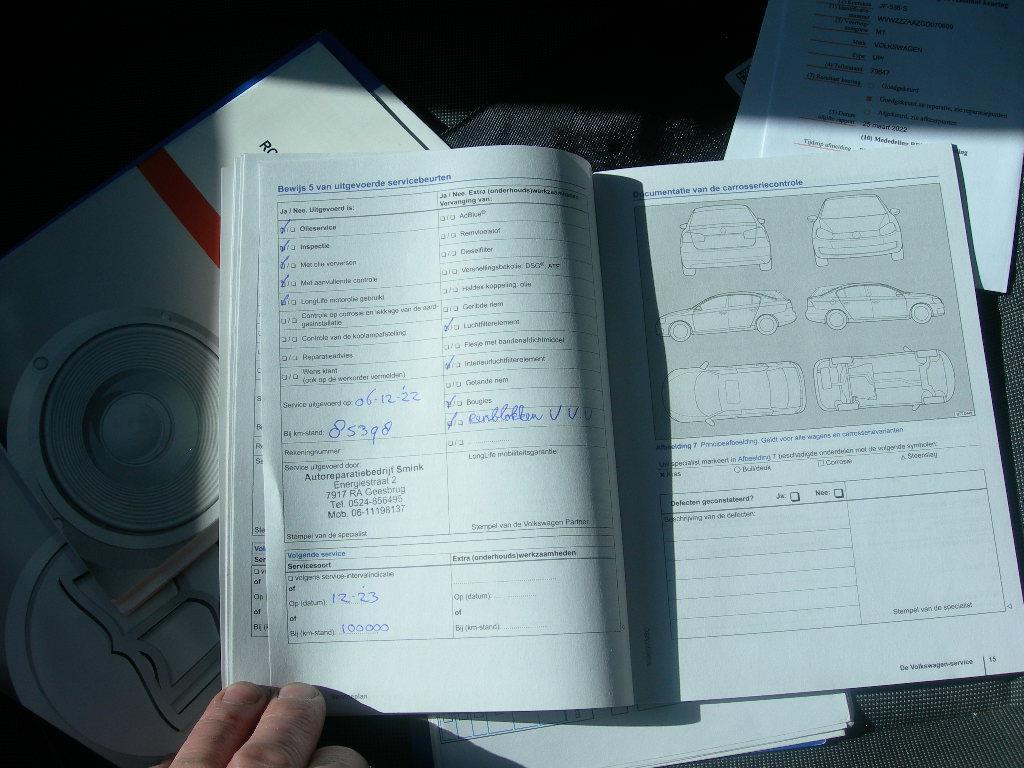 RO
JF-538-S
MT
Merk VOLKSWAGEN
Type UP!
(4) Tellerstand 79847
(7) Resultaat keuring
Goedgekeurd
Goedgekeurd na reparatie, zie reparatiepunten
Afgekeurd, zie afkeurpunten
25 maart 2022
Tijdstip afmelding
Bewijs 5 van uitgevoerde servicebeurten
Ja / Nee. Uitgevoerd is:
Olieservice
Inspectie
Met olie verversen
Met aanvullende controle
LongLife motorolie gebruikt
Controle op corrosie en lekkage van de aard-
gasinstallatie
Controle van de koplampafstelling
Reparatieadvies
Wens klant
(ook op de werkorder vermelden)
Service uitgevoerd op: 06-12-22
Bij km-stand: 85398
Rekeningnummer
Service uitgevoerd door:
Autoreparatiebedrijf Smink
Energiestraat 2
7917 RA Geesbrug
Tel. 0524-856495
Mob. 06-11198137
Stempel van de specialist
Ja / Nee. Extra (onderhouds)werkzaamheden
Vervanging van:
AdBlue®
Remvloeistof
Dieselfilter
Versnellingsbakolie: DSG®, ATF
Haldex-koppeling: olie
Geribde riem
Luchtfilterelement
Flesje met bandenafdichtmiddel
Interieurluchtfilterelement
Getande riem
Bougies
Remblokken V V.V
LongLife mobiliteitsgarantie:
Stempel van de Volkswagen Partner
Volgende service
Servicesoort
volgens service-intervalindicatie
of
Op (datum): 12-23
of
Bij (km-stand): 100000
Extra (onderhouds)werkzaamheden
Op (datum):
of
Bij (km-stand):
Documentatie van de carrosseriecontrole
Afbeelding 7 Principeafbeelding. Geldt voor alle wagens en carrosserievarianten
Uw specialist markeert in Afbeelding 7 beschadigde onderdelen met de volgende symbolen:
× Kras ○ Buil/deuk □ Corrosie △ Steenslag
Defecten geconstateerd? Ja: Nee:
Beschrijving van de defecten:
Stempel van de specialist
De Volkswagen-service 15